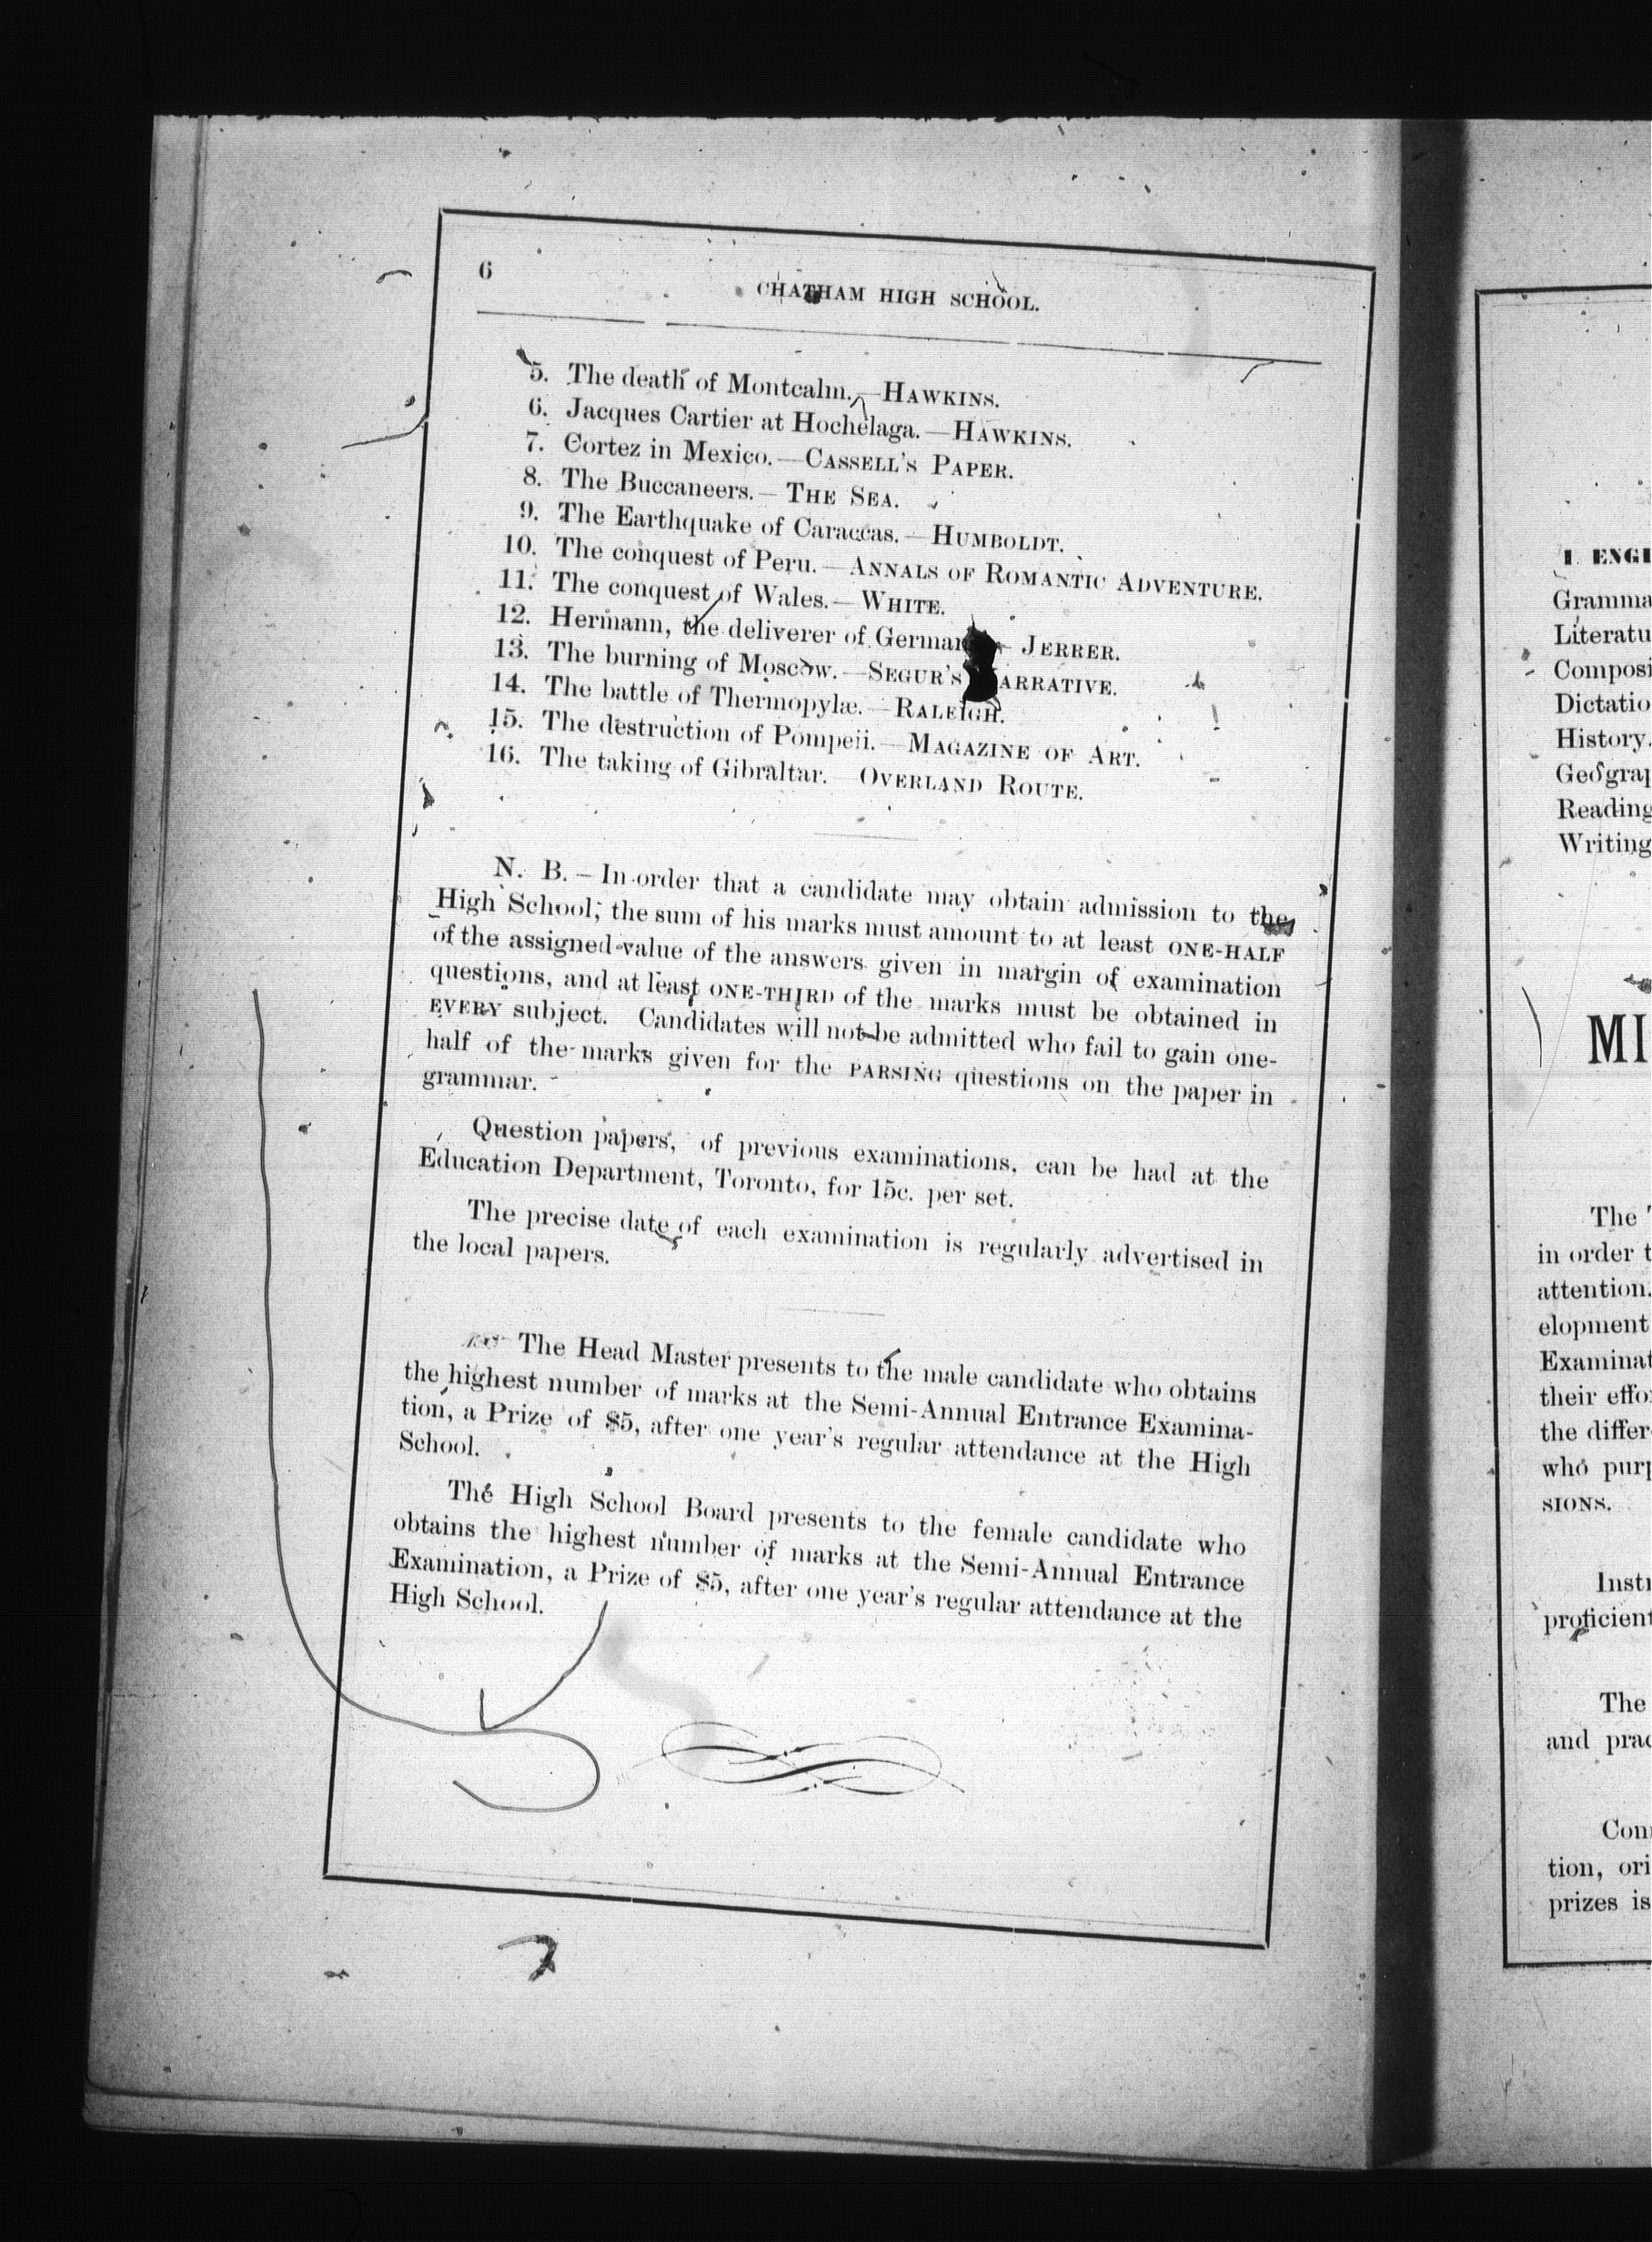 6
CHATHAM HIGH SCHOOL.
5. The death of Montcalm.—HAWKINS.
6. Jacques Cartier at Hochelaga.—HAWKINS.
7. Cortez in Mexico.—CASSELL'S PAPER.
8. The Buccaneers.—THE SEA.
9. The Earthquake of Caraccas.—HUMBOLDT.
10. The conquest of Peru.—ANNALS OF ROMANTIC ADVENTURE.
11. The conquest of Wales.—WHITE.
12. Hermann, the deliverer of German — JERRER.
13. The burning of Moscow.—SEGUR'S ARRATIVE.
14. The battle of Thermopylæ.—RALEIGH.
15. The destruction of Pompeii.—MAGAZINE OF ART.
16. The taking of Gibraltar. OVERLAND ROUTE.
N. B.—In order that a candidate may obtain admission to the
High School, the sum of his marks must amount to at least ONE-HALF
of the assigned value of the answers given in margin of examination
questions, and at least ONE-THIRD of the marks must be obtained in
EVERY subject. Candidates will not be admitted who fail to gain one-
half of the marks given for the PARSING questions on the paper in
grammar.
Question papers, of previous examinations, can be had at the
Education Department, Toronto, for 15c. per set.
The precise date of each examination is regularly advertised in
the local papers.
The Head Master presents to the male candidate who obtains
the highest number of marks at the Semi-Annual Entrance Examina-
tion, a Prize of $5, after one year's regular attendance at the High
School.
The High School Board presents to the female candidate who
obtains the highest number of marks at the Semi-Annual Entrance
Examination, a Prize of $5, after one year's regular attendance at the
High School.
I. ENGL
Gramma
Literatu
Composi
Dictatio
History.
Geograp
Reading
Writing
MI
The
in order t
attention.
elopment
Examinat
their effo
the differ
who purp
SIONS.
Instr
proficient
The
and prac
Con
tion, ori
prizes is